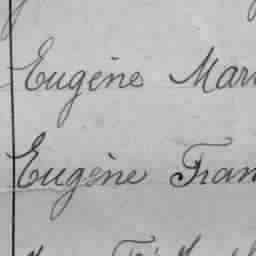 Eugène Mar
Eugène Fran